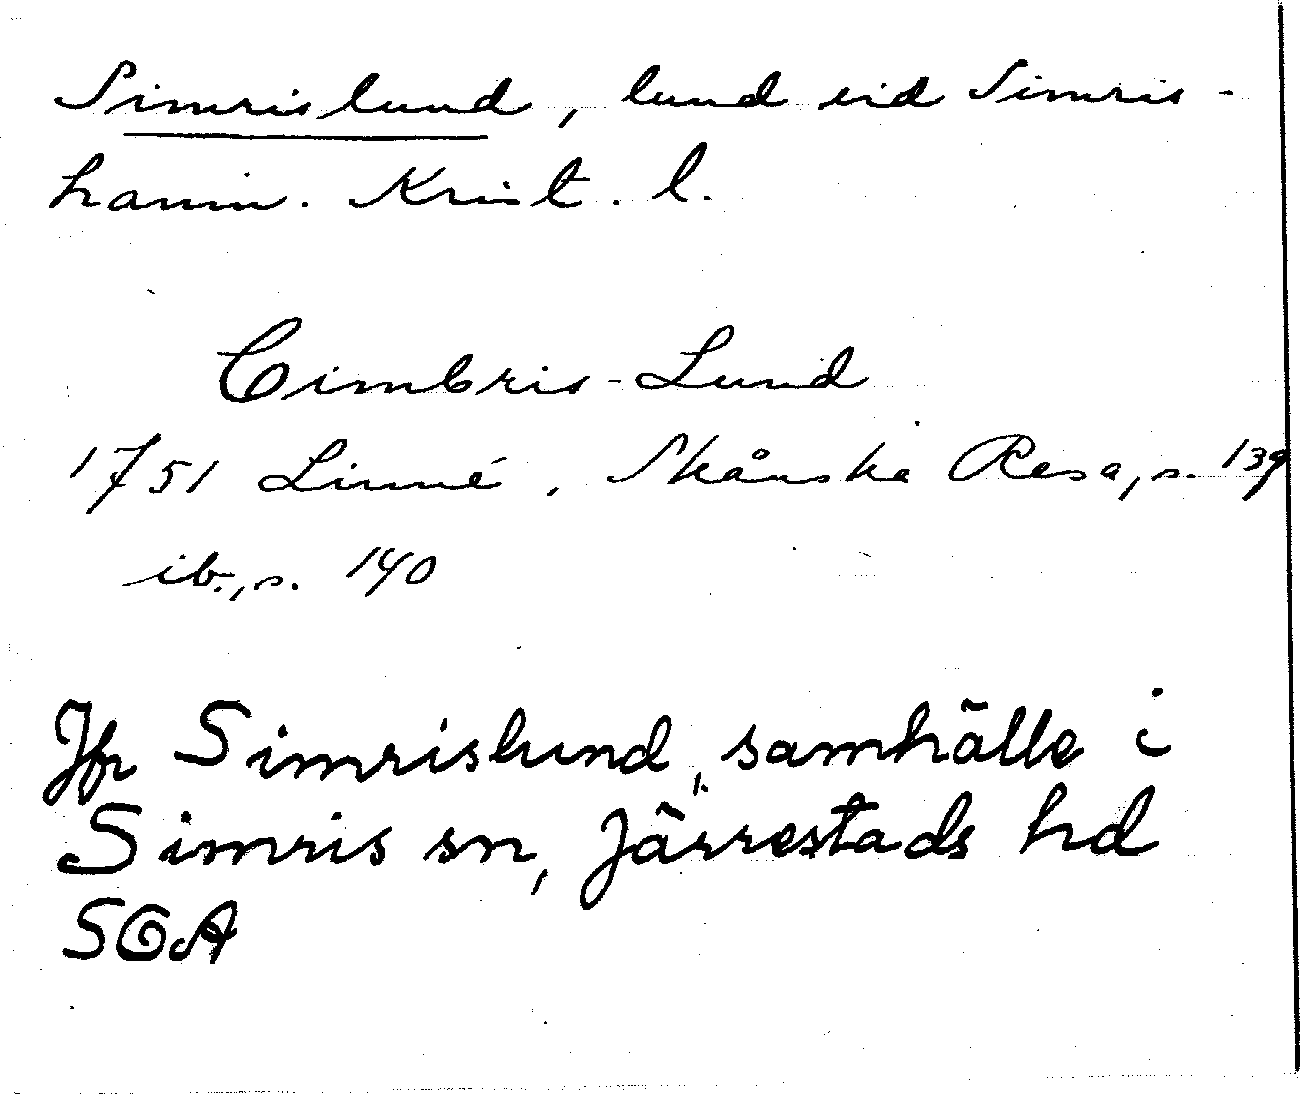 Simrislund, lund vid Simris-
hamn. Krist. l.
Cimbris-Lund
1751 Linné, Skånska Resa, s. 139
ib., s. 140
Jfr Simrislund, samhälle i
Simris sn, Järrestads hd
SOA